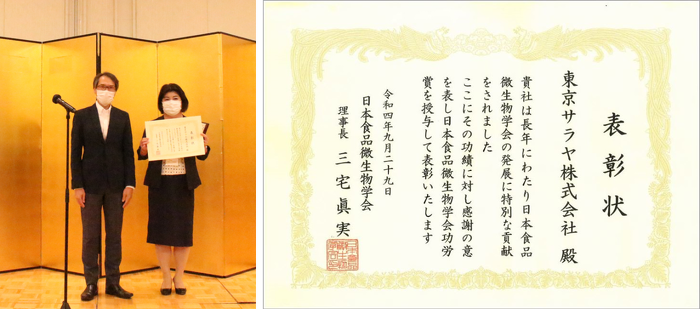 表彰状
東京サラヤ株式会社 殿
貴社は長年にわたり日本食品
微生物学会の発展に特別な貢献
をされました
ここにその功績に対し感謝の意
を表し日本食品微生物学会功労
賞を授与して表彰いたします
令和四年九月二十九日
日本食品微生物学会
理事長 三宅眞実